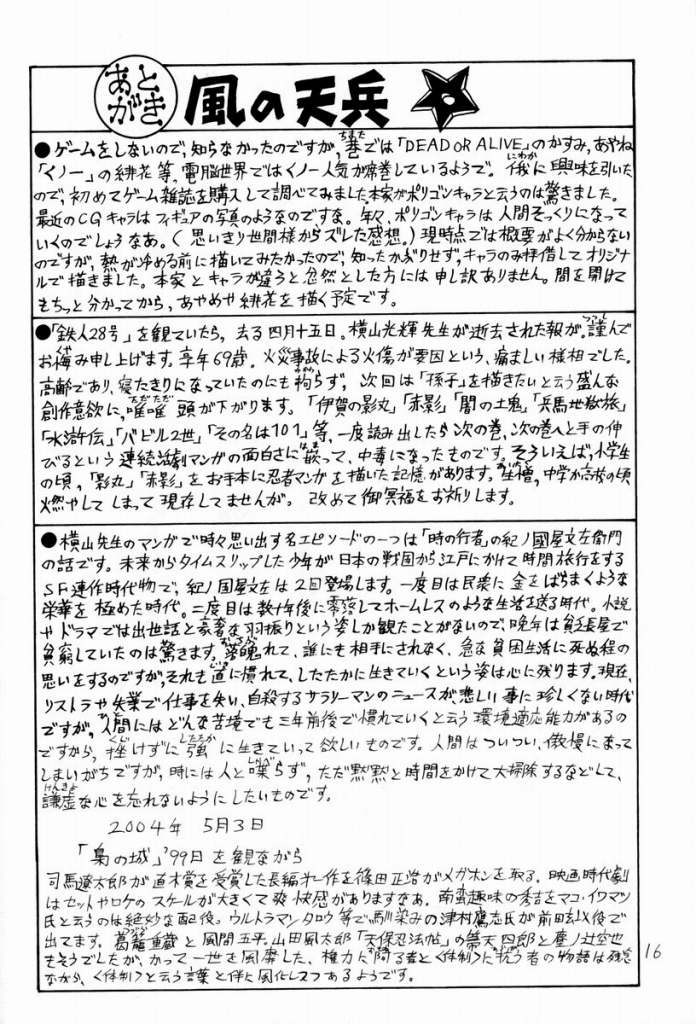 あとがき 風の天兵
●ゲームをしないので、知らなかったのですが、巷では「DEAD OR ALIVE」のかすみ、あやね
「くノ一」の緋花等、電脳世界ではくノ一人気が席巻しているようで。俄に興味を引いた
ので、初めてゲーム雑誌を購入して調べてみました。本家がポリゴンキャラと云うのは驚きました。
最近のCGキャラはフィギュアの写真のようなのですな。年々、ポリゴンキャラは人間そっくりになって
いくのでしょうなあ。(思いきり世間様からズレた感想。)現時点では概要がよく分からない
のですが、熱が冷める前に描いてみたかったので、知ったかぶりせず、キャラのみ拝借してオリジナ
ルで描きました。本家とキャラが違うと忽然とした方には申し訳ありません。間を開けて
もちっと分かってから、あやめや緋花を描く予定です。
●「鉄人28号」を観ていたら、去る四月十五日。横山光輝先生が逝去された報が。謹んで
お悔み申し上げます。享年69歳。火災事故による火傷が要因という、痛ましい様相でした。
高齢であり、寝たきりになっていたのにも拘らず、次回は「孫子」を描きたいと云う盛んな
創作意欲に、唯唯頭が下がります。「伊賀の影丸」「赤影」「闇の土鬼」「兵馬地獄旅」
「水滸伝」「バビル2世」「その名は101」等、一度読み出したら次の巻、次の巻へと手の伸
びるという連続活劇マンガの面白さに嵌って、中毒になったものです。そういえば、小学生
の頃、「影丸」「赤影」をお手本に忍者マンガを描いた記憶があります。生憎、中学か高校の頃
燃やしてしまって現存してませんが。改めて御冥福をお祈りします。
●横山先生のマンガで時々思い出す名エピソードの一つは「時の行者」の紀ノ國屋文左衛門
の話です。未来からタイムスリップした少年が日本の戦国から江戸にかけて時間旅行をする
SF連作時代物で、紀ノ国屋文左は2回登場します。一度目は民衆に金をばらまくような
栄華を極めた時代。二度目は数十年後に零落してホームレスのような生活を送る時代。小説
やドラマでは出世話と豪奢な羽振りという姿しか観たことがないので、晩年は貧乏長屋で
貧窮していたのは驚きます。落魄れて、誰にも相手にされなく、急な貧困生活に死ぬ程の
思いをするのですが、それも直に慣れて、したたかに生きていくという姿は心に残ります。現在、
リストラや失業で仕事を失い、自殺するサラリーマンのニュースが、悲しい事に珍しくない時代
ですが、人間にはどんな苦境でも三年前後で慣れていくと云う環境適応能力があるの
ですから、挫けずに強に生きていって欲しいものです。人間はついつい、傲慢になって
しまいがちですが、時には人と喋らず、ただ黙黙と時間をかけて大掃除するなどして、
謙虚な心を忘れないようにしたいものです。
2004年 5月3日
「梟の城」'99日を観ながら
司馬遼太郎が直木賞を受賞した長編第一作を篠田正浩がメガホンを取る。映画時代劇
はセットやロケのスケールが大きくて爽快感がありますなあ。南蛮趣味の秀吉をマコ・イワマツ
氏と云うのは絶妙な配役。ウルトラマンタロウ等で馴染みの津村鷹志氏が前田玄以役で
出てます。葛籠重蔵と風間五平。山田風太郎「天保忍法帖」の筑天四郎と塵ノ辻空也
もそうでしたが、かつて一世を風靡した、権力に阿る者と〈体制〉に抗う者の物語は残念
ながら、〈体制〉と云う言葉と伴に風化しつつあるようです。
16